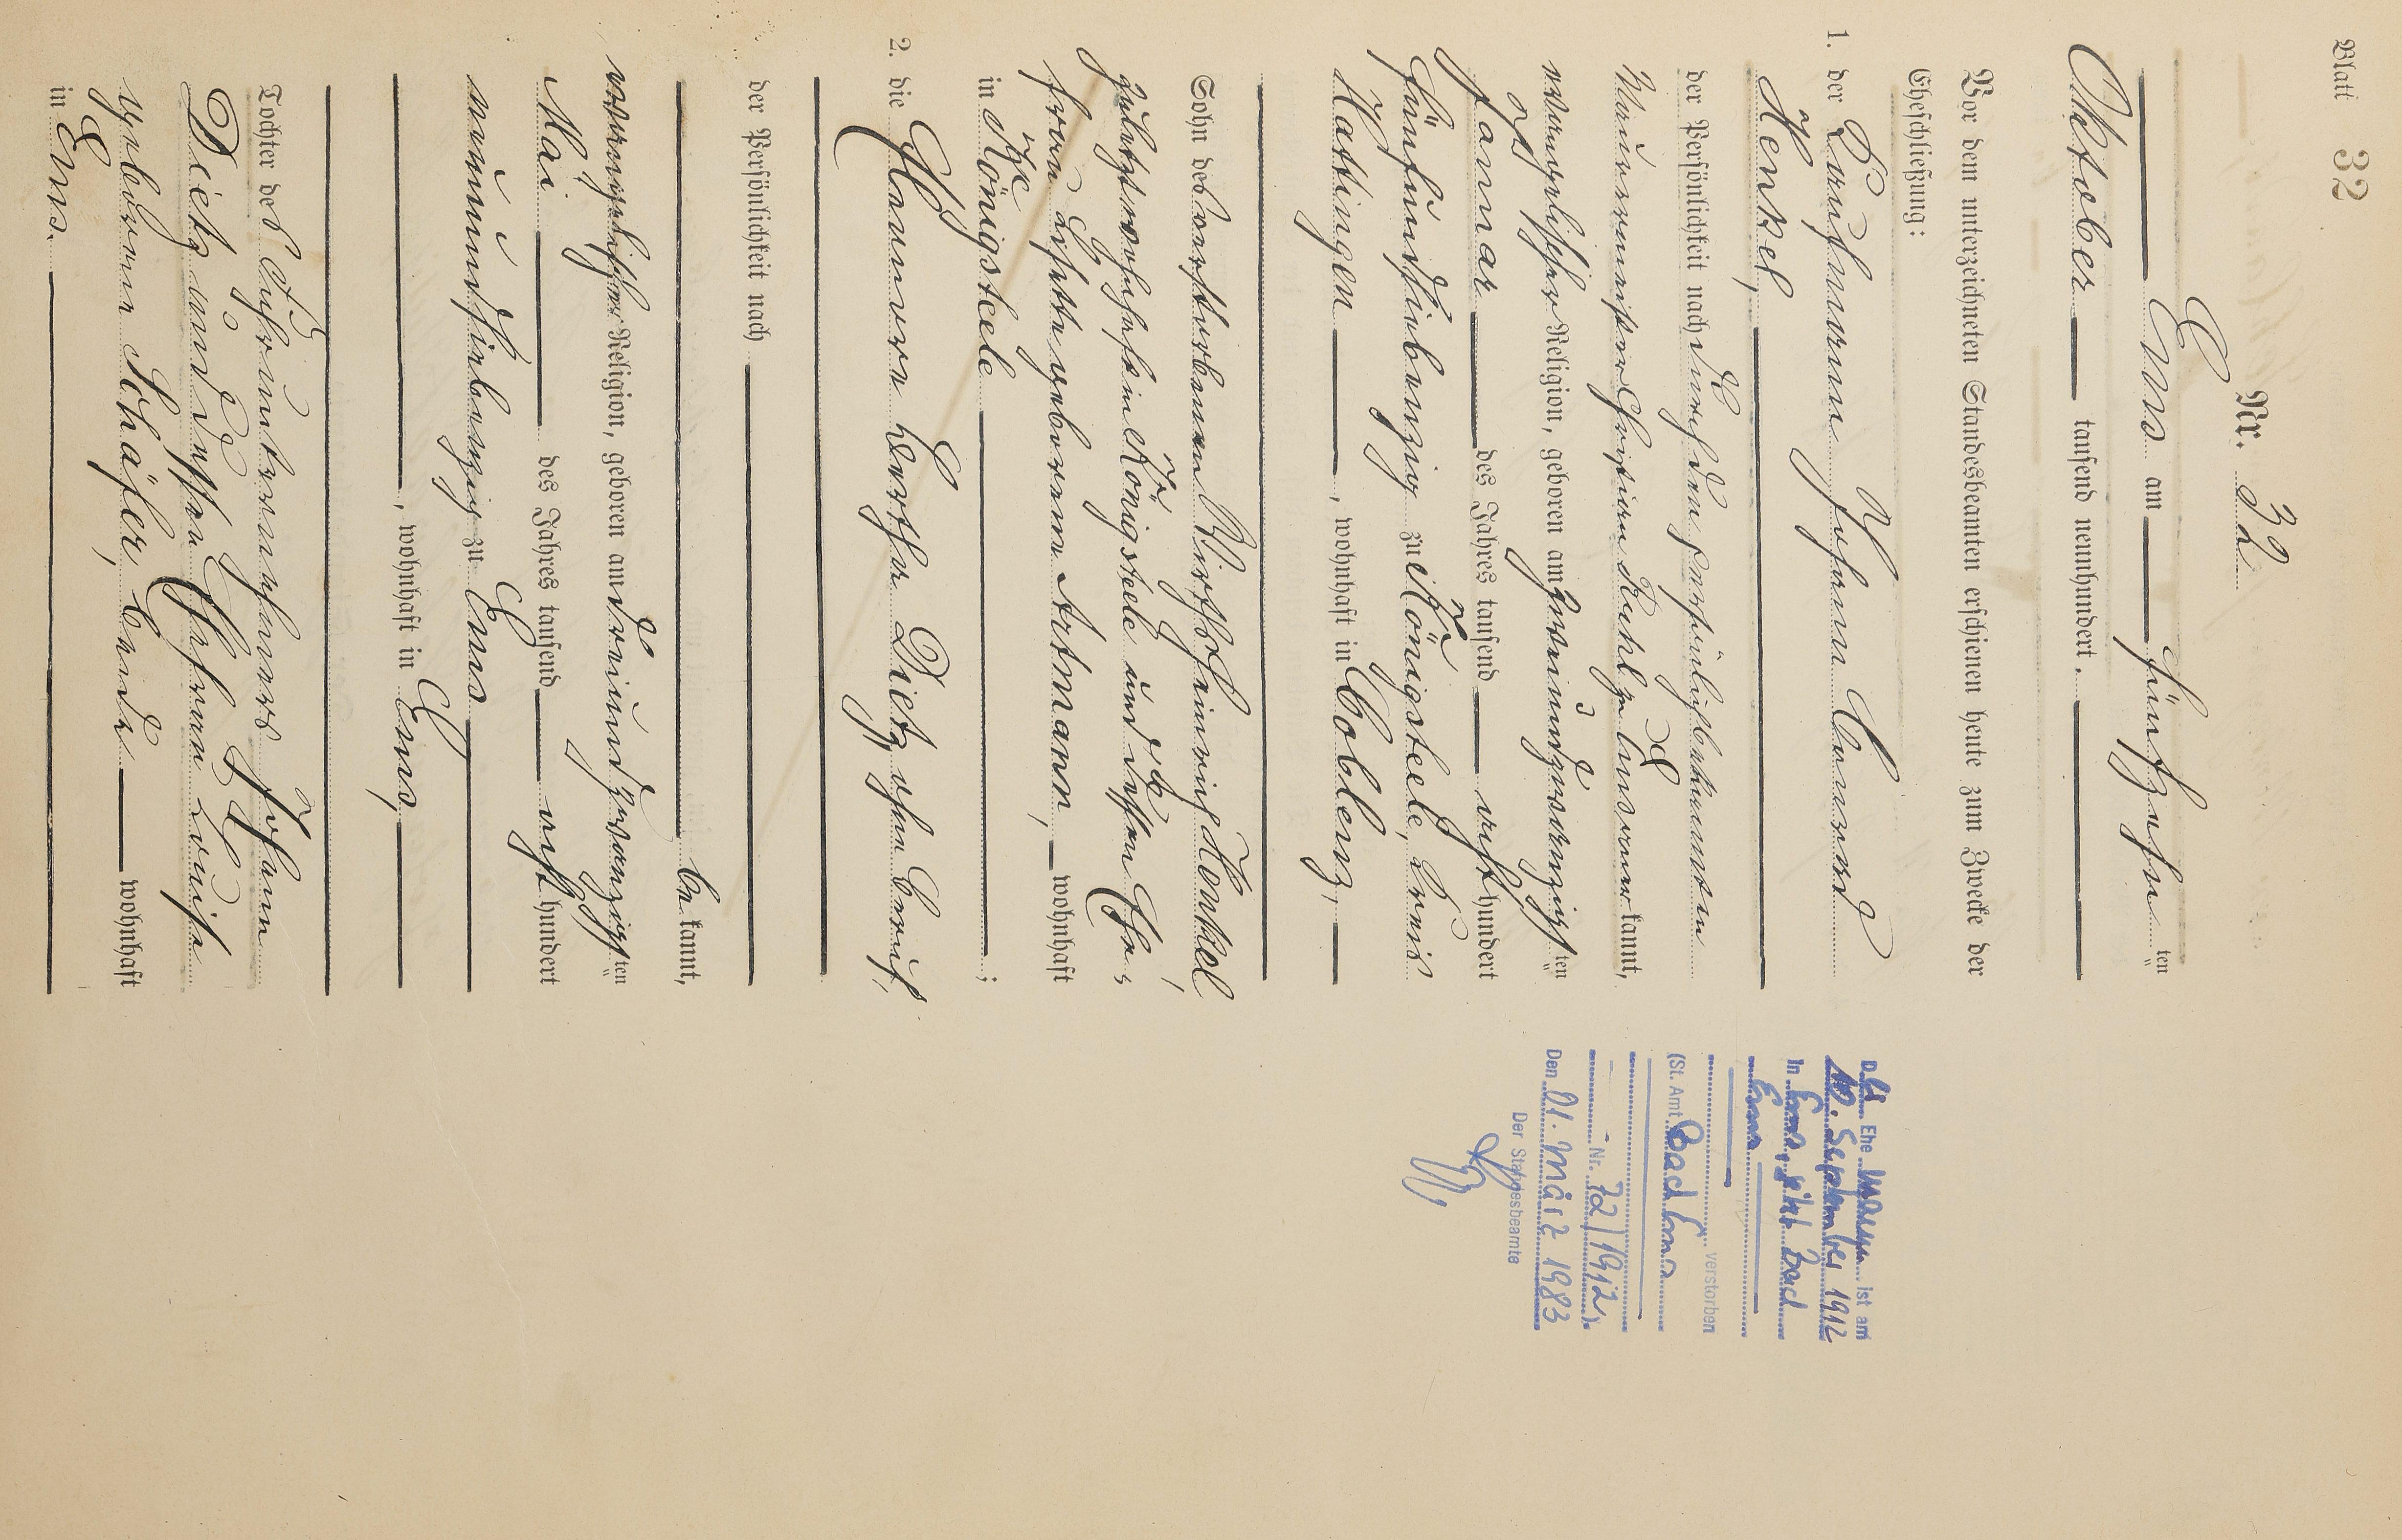 Blatt 32
Nr. 32
Ems am fünfzehn ten
Oktober tausend neunhundert.
Vor dem unterzeichneten Standesbeamten erschienen heute zum Zwecke der
Eheschließung:
1. der Kaufmann Johann Conrad
Henkel,
der Persönlichkeit nach durch den persönlich bekannten
Maurermeister Christian Kuhl zu Ems aner kannt,
evangelischer Religion, geboren am zweiundzwanzigsten
Januar des Jahres tausend acht hundert
fünfundsiebenzig zu Königssteele, Kreis
Hattingen, wohnhaft in Coblenz,
Sohn des verstorbenen Wirths Heinrich Henkel,
zuletzt wohnhaft in Königssteele und dessen Ehe-
frau Lisette geborene Artmann, wohnhaft
in Königssteele;
2. die Hanna Bertha Dietz, ohne Beruf,
der Persönlichkeit nach
be kannt,
evangelischer Religion, geboren am dreiundzwanzigsten
Mai des Jahres tausend acht hundert
neunundsiebenzig zu Ems
, wohnhaft in Ems,
Tochter des Fuhrunternehmers Johann
Dietz und dessen Ehefrau Louise
geborene Schäfer, beide wohnhaft
in Ems.
D Ehe mann ist am
10. September 1912
in Ems, jetzt Bad
Ems
verstorben
(St. Amt Bad Ems
Nr. 72/1912).
Den 01. März 1983
Der Standesbeamte